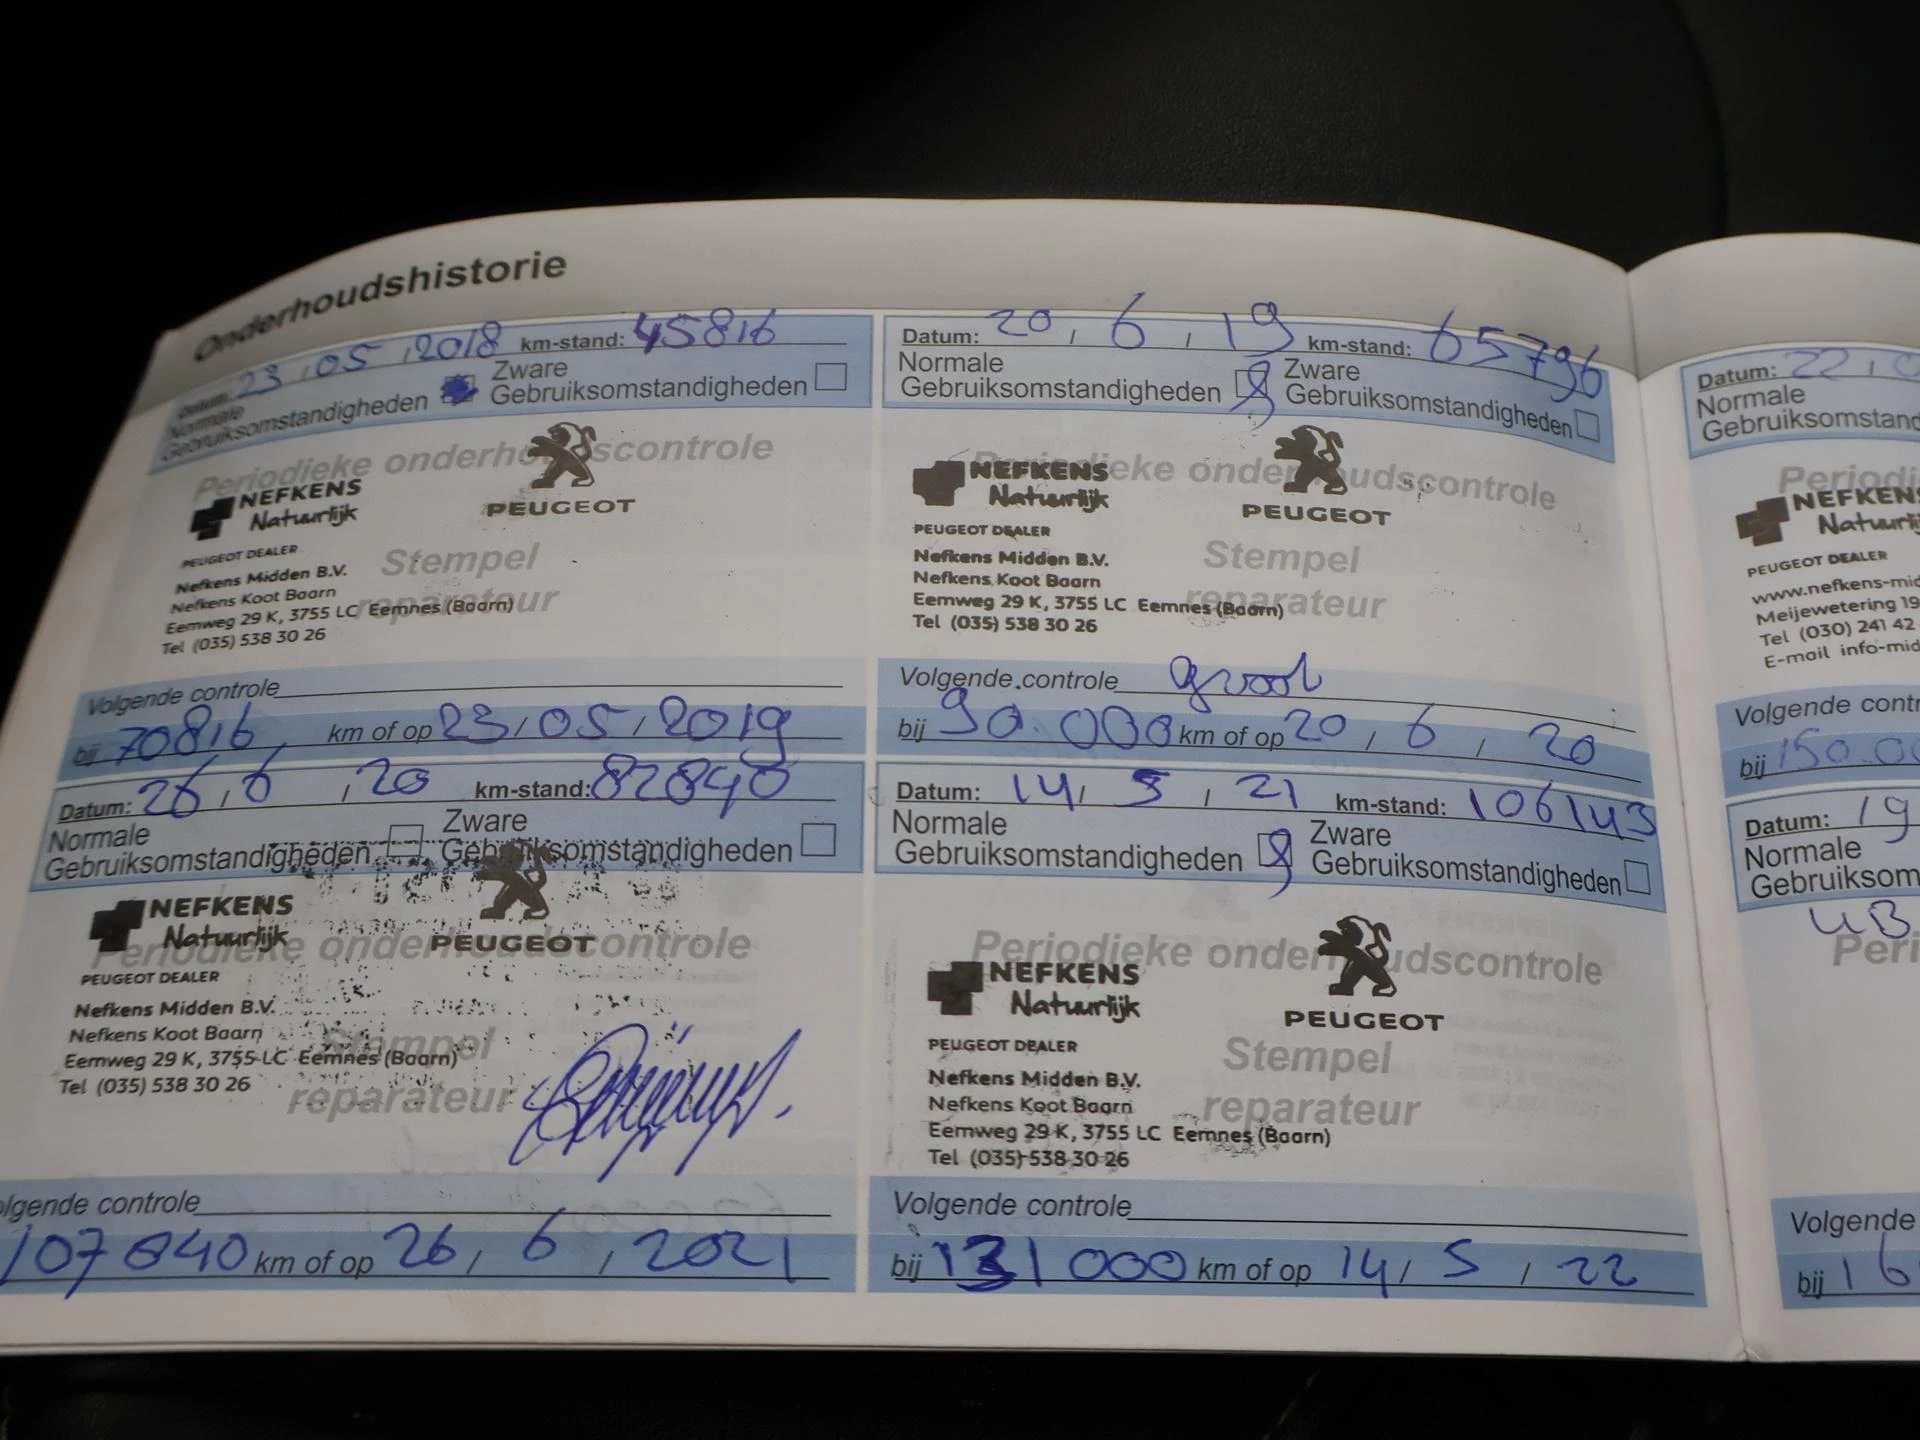 Onderhoudshistorie
Datum: 23 / 05 / 2018 km-stand: 45816
Normale
Gebruiksomstandigheden
Zware
Gebruiksomstandigheden
Periodieke onderhoudscontrole
NEFKENS
Natuurlijk
PEUGEOT
PEUGEOT DEALER
Stempel
reparateur
Nefkens Midden B.V.
Nefkens Koot Baarn
Eemweg 29 K, 3755 LC Eemnes (Baarn)
Tel (035) 538 30 26
Volgende controle
bij 70816 km of op 23 / 05 / 2019
Datum: 20 / 6 / 19 km-stand: 65796
Normale
Gebruiksomstandigheden
Zware
Gebruiksomstandigheden
Periodieke onderhoudscontrole
NEFKENS
Natuurlijk
PEUGEOT
PEUGEOT DEALER
Stempel
reparateur
Nefkens Midden B.V.
Nefkens Koot Baarn
Eemweg 29 K, 3755 LC Eemnes (Baarn)
Tel (035) 538 30 26
Volgende controle groot
bij 90.000 km of op 20 / 6 / 20
Datum: 26 / 6 / 20 km-stand: 82840
Normale
Gebruiksomstandigheden
Zware
Gebruiksomstandigheden
NEFKENS
Natuurlijk
PEUGEOT
Periodieke onderhoudscontrole
PEUGEOT DEALER
Stempel
reparateur
Nefkens Midden B.V.
Nefkens Koot Baarn
Eemweg 29 K, 3755 LC Eemnes (Baarn)
Tel (035) 538 30 26
olgende controle
107840 km of op 26 / 6 / 2021
Datum: 14 / 5 / 21 km-stand: 106143
Normale
Gebruiksomstandigheden
Zware
Gebruiksomstandigheden
Periodieke onderhoudscontrole
NEFKENS
Natuurlijk
PEUGEOT
PEUGEOT DEALER
Stempel
reparateur
Nefkens Midden B.V.
Nefkens Koot Baarn
Eemweg 29 K, 3755 LC Eemnes (Baarn)
Tel (035) 538 30 26
Volgende controle
bij 131000 km of op 14 / 5 / 22
Datum: 22 /
Normale
Gebruiksomstand
Periodi
NEFKENS
Natuurlij
PEUGEOT DEALER
www.nefkens-mid
Meijewetering 19
Tel (030) 241 42
E-mail info-mid
Volgende contr
bij 150.00
Datum: 19
Normale
Gebruiksom
Peri
Volgende
bij 16